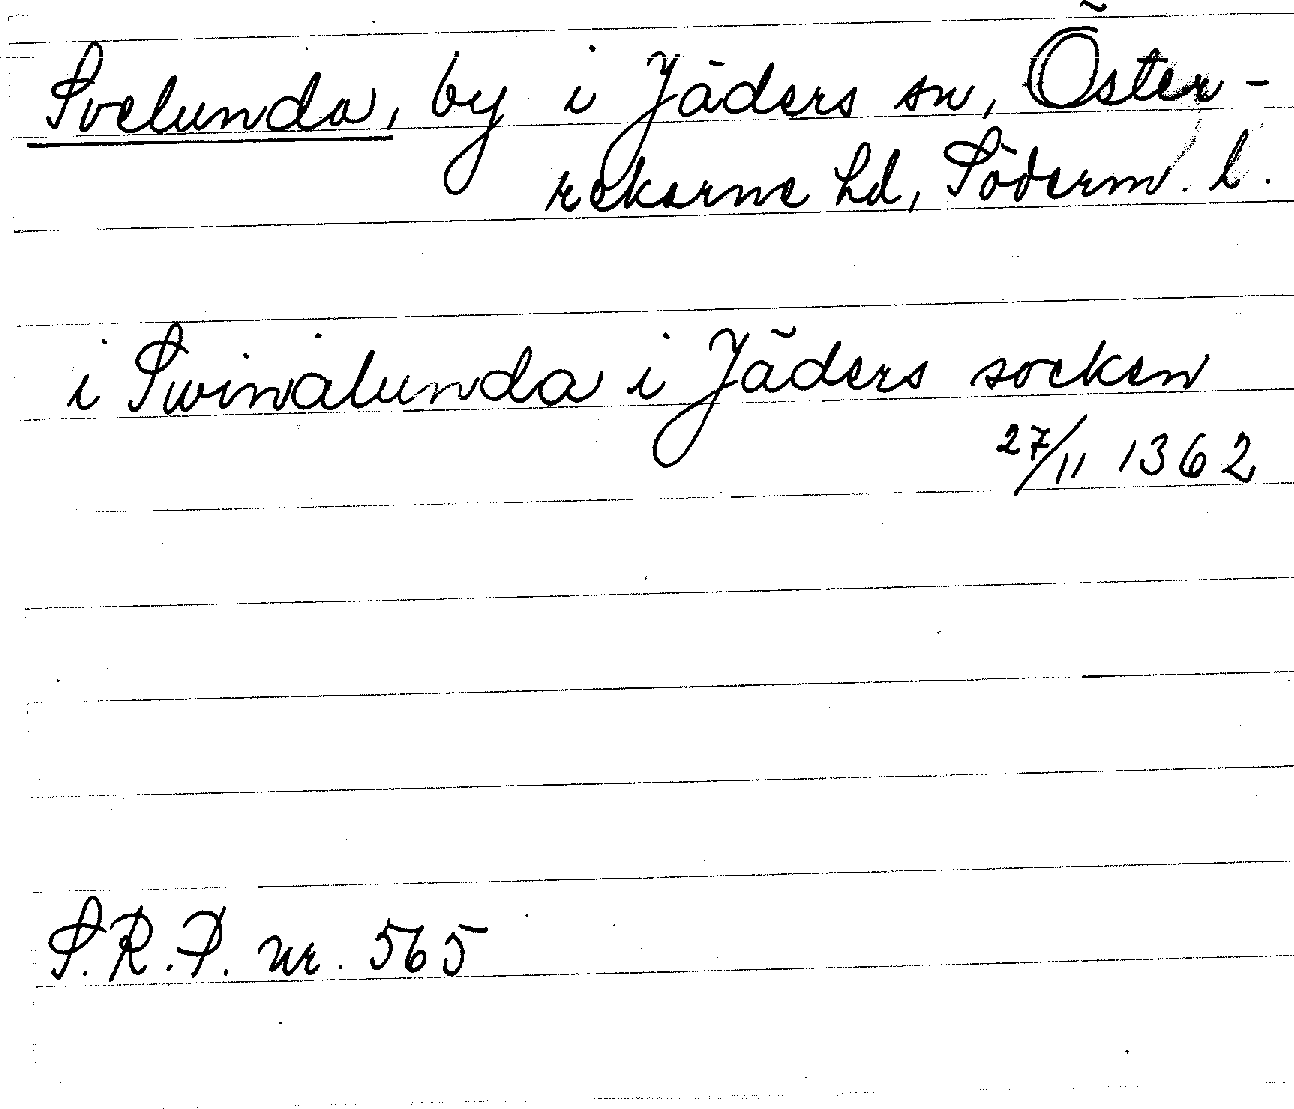 Svelunda, by i Jäders sn, Öster-
rekarne hd, Söderm. l.
i Swinalunda i Jäders socken
27/11 1362
S.R.P. nr. 565